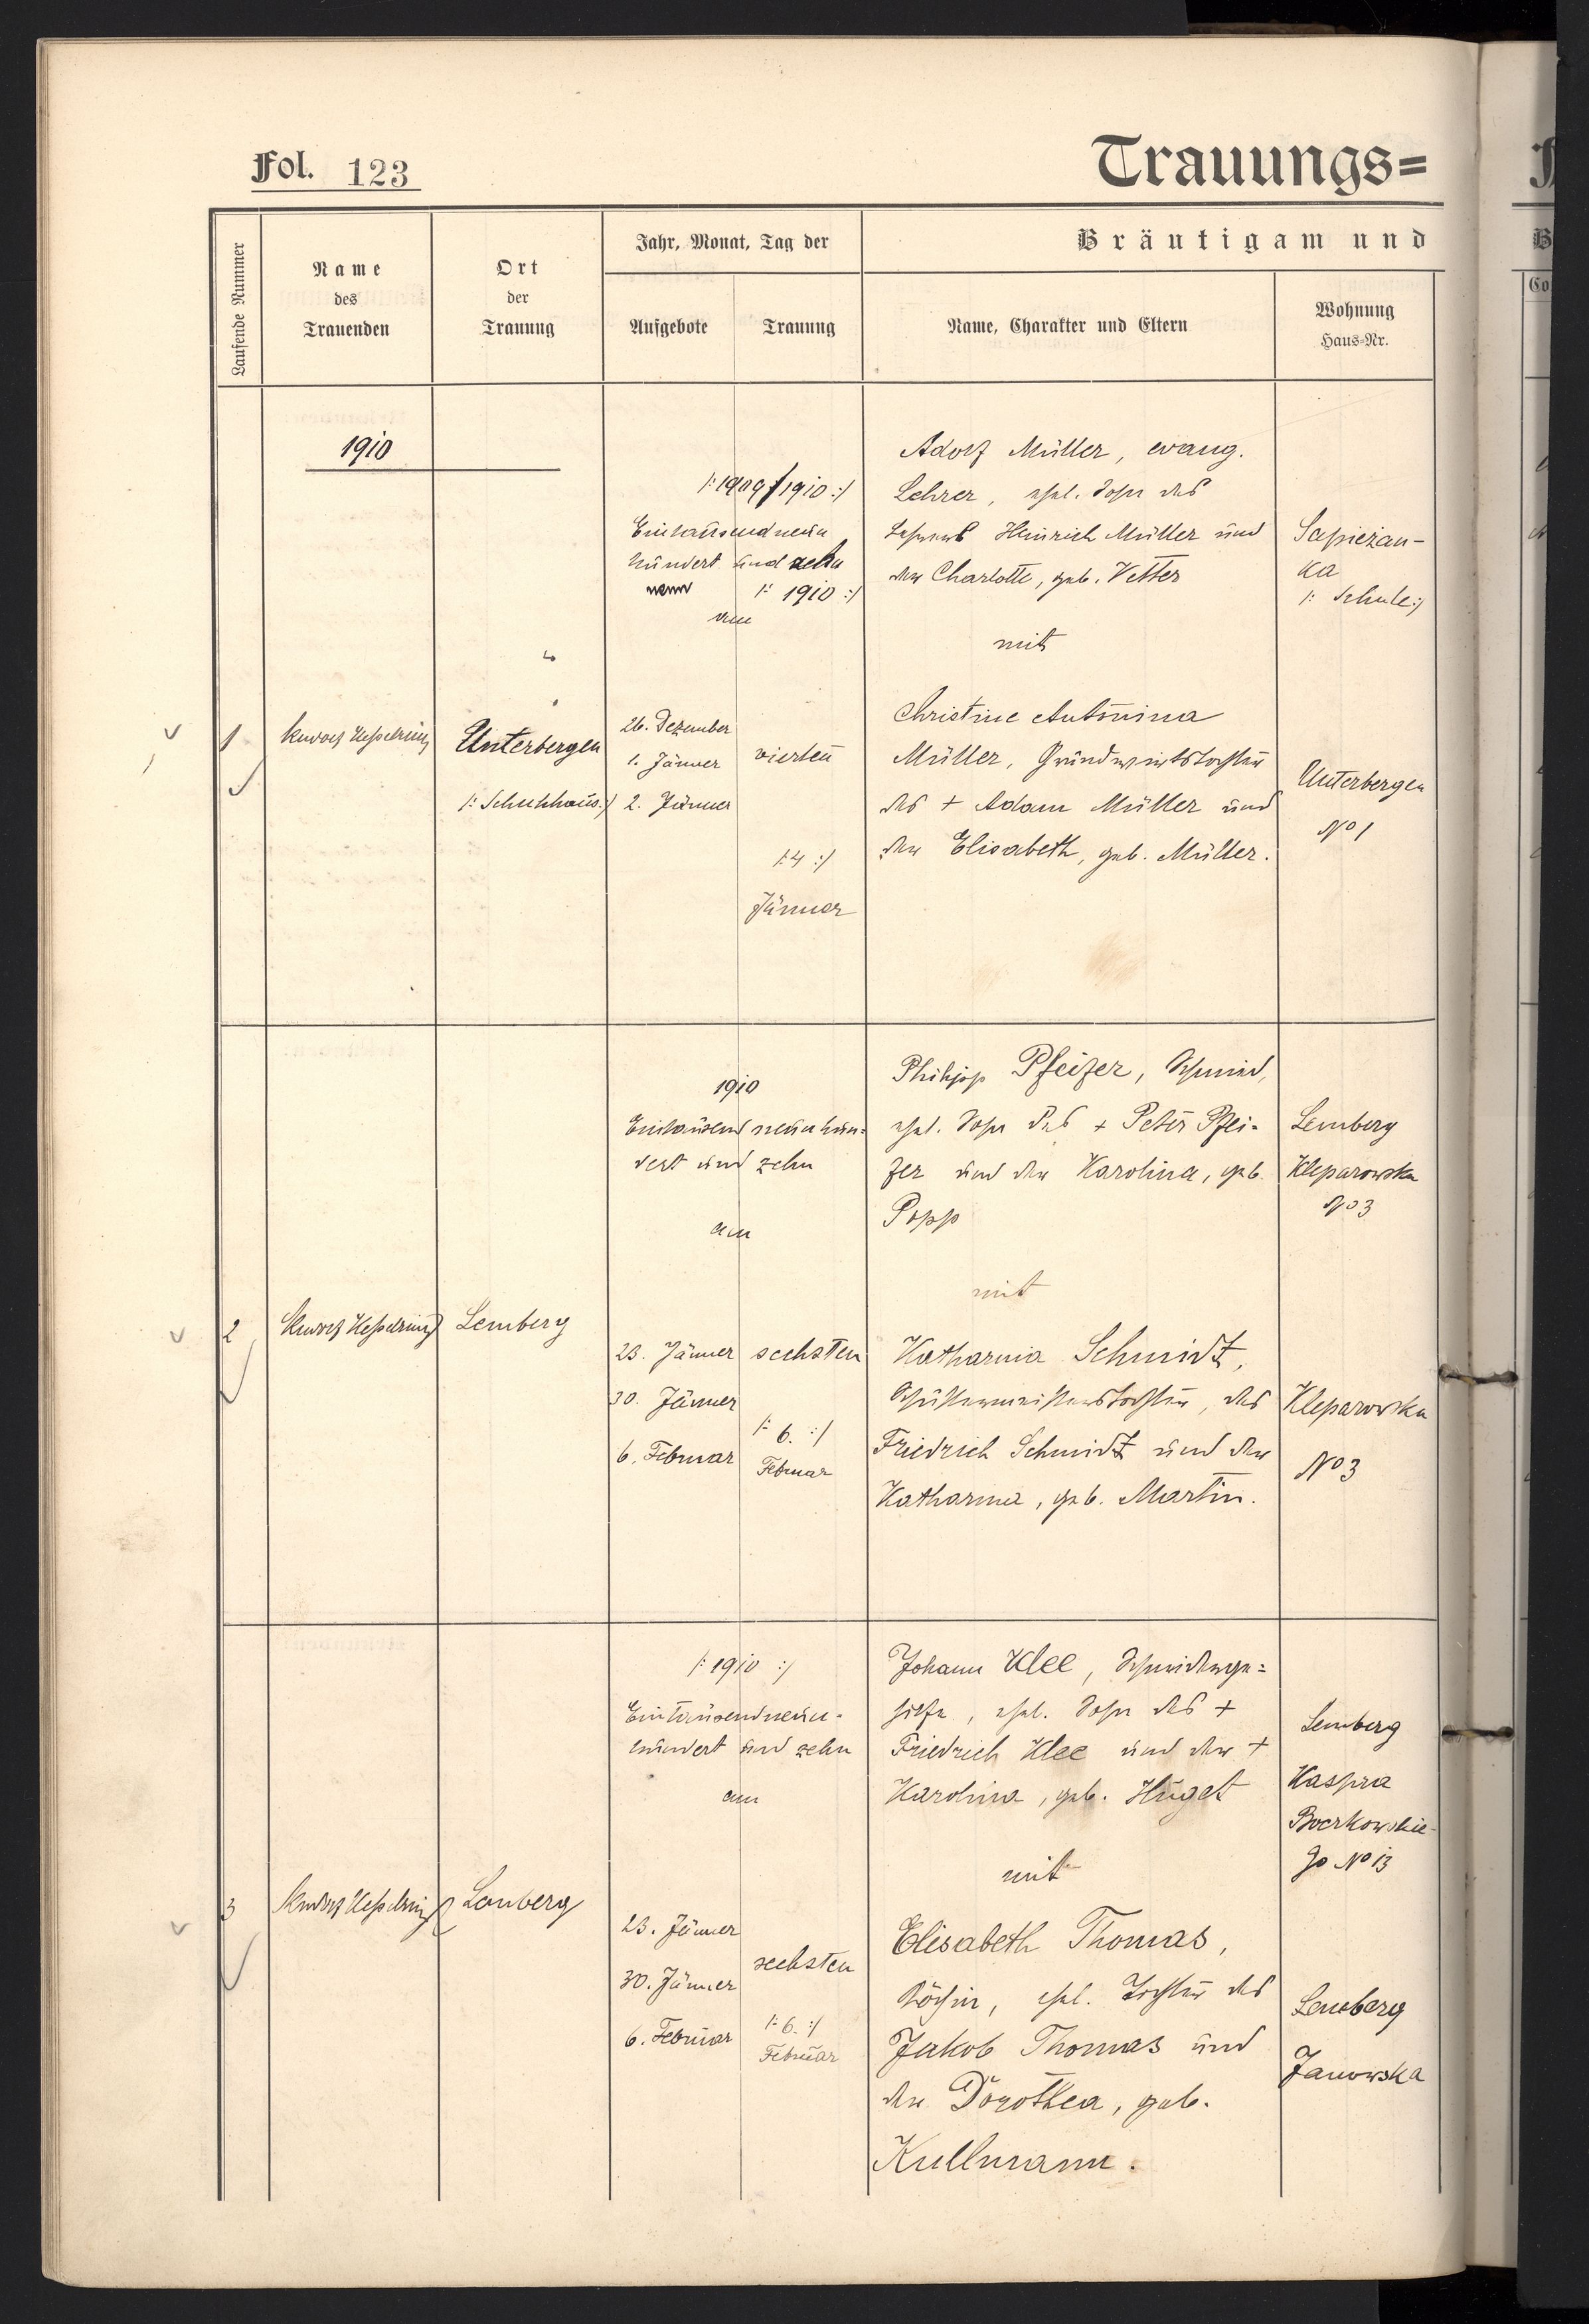 Fol. 123
Trauungs=
Laufende Nummer
Name
des
Trauenden
Ort
der
Trauung
Jahr, Monat, Tag der
Aufgebote
Trauung
Bräutigam und
Name, Charakter und Eltern
Wohnung
Haus=Nr.
1910
1
Rudolf Kesselring
Unterbergen
/: Schulhaus :/
/: 1909/1910 :/
Eintausend neun
hundert und zehn
/: 1910 :/
am
26. Dezember
1. Jänner
2. Jänner
vierten
/: 4 :/
Jänner
Adolf Müller, evang.
Lehrer, ehel. Sohn des
Lehrers Heinrich Müller und
der Charlotte, geb. Vetter
mit
Christine Antonina
Müller, Grundwirtstochter
des + Adam Müller und
der Elisabeth, geb. Müller.
Sapieżan-
ka
/: Schule :/
Unterbergen
No 1
2
Rudolf Kesselring
Lemberg
1910
Eintausend neunhun=
dert und zehn
am
23. Jänner
30. Jänner
6. Februar
sechsten
/: 6. :/
Februar
Philipp Pfeifer, Schmied,
ehel. Sohn des + Peter Pfei=
fer und der Karolina, geb.
Popp
mit
Katharina Schmidt,
Schustermeisterstochter, des
Friedrich Schmidt und der
Katharina, geb. Martin.
Lemberg
Kleparowska
No 3
Kleparowska
No 3
3
Rudolf Kesselring
Lemberg
/: 1910 :/
Eintausendneun=
hundert und zehn
am
23. Jänner
30. Jänner
6. Februar
sechsten
/: 6. :/
Februar
Johann Klee, Schneiderge=
hilfe, ehel. Sohn des +
Friedrich Klee und der +
Karolina, geb. Huget
mit
Elisabeth Thomas,
Köchin, ehel. Tochter des
Jakob Thomas und
der Dorothea, geb.
Kullmann.
Lemberg
Kaspra
Boczkowskie-
go No 13
Lemberg
Janowska